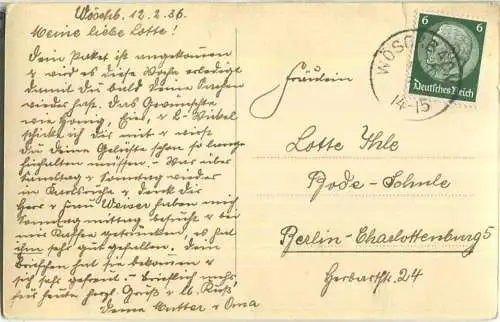 Wöschb. 12.2.36.
Meine liebe Lotte!
Dein Paket ist angekommen
& wird es diese Woche erledigt
damit Du bald Deine Sachen
wieder hast. Das Gewünschte
wie Honig, Eier, & L. Wickel
schicke ich Dir mit & wirst
Du Deine Gelüste schon so lange
hinhalten müssen. – War über
Samstag & Sonntag wieder
in Karlsruhe & denk Dir
Herr & Frau Weiser haben mich
Sonntag mittag besucht & bei
mir Kaffee getrunken, es hat
ihm sehr gut gefallen. Dein
Briefchen hat sie bekommen &
sich sehr gefreut. – Brieflich mehr
für heute herzl. Gruß & Kuß
Deine Mutter & Oma
Fräulein
Lotte Ihle
Bode-Schule
Berlin-Charlottenburg 5
Herbartstr. 24
6 6
Deutsches Reich
WÖSCHBACH
14-15